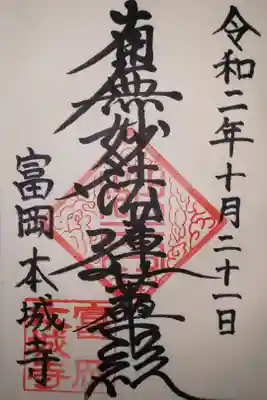 令和二年十月二十一日
南無妙法蓮華経
富岡本城寺